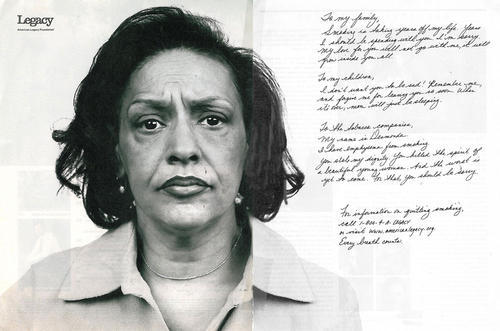 Legacy
American Legacy Foundation
To my family,
Smoking is taking years off my life. Years
I should be spending with you. I'm sorry.
My love for you will not go with me, it will
from inside you all.
To my children,
I don't want you to be sad! Remember me,
and forgive me for leaving you so soon. When
it's over, mom will just be sleeping.
To the tobacco companies,
My name is
I have emphysema from smoking.
You stole my dignity. You killed the spirit of
a beautiful young woman. And the worst is
yet to come. For that, you should be sorry.
For information on quitting smoking,
call 1-800-4-A-LEGACY
or visit www.americanlegacy.org.
Every breath counts.